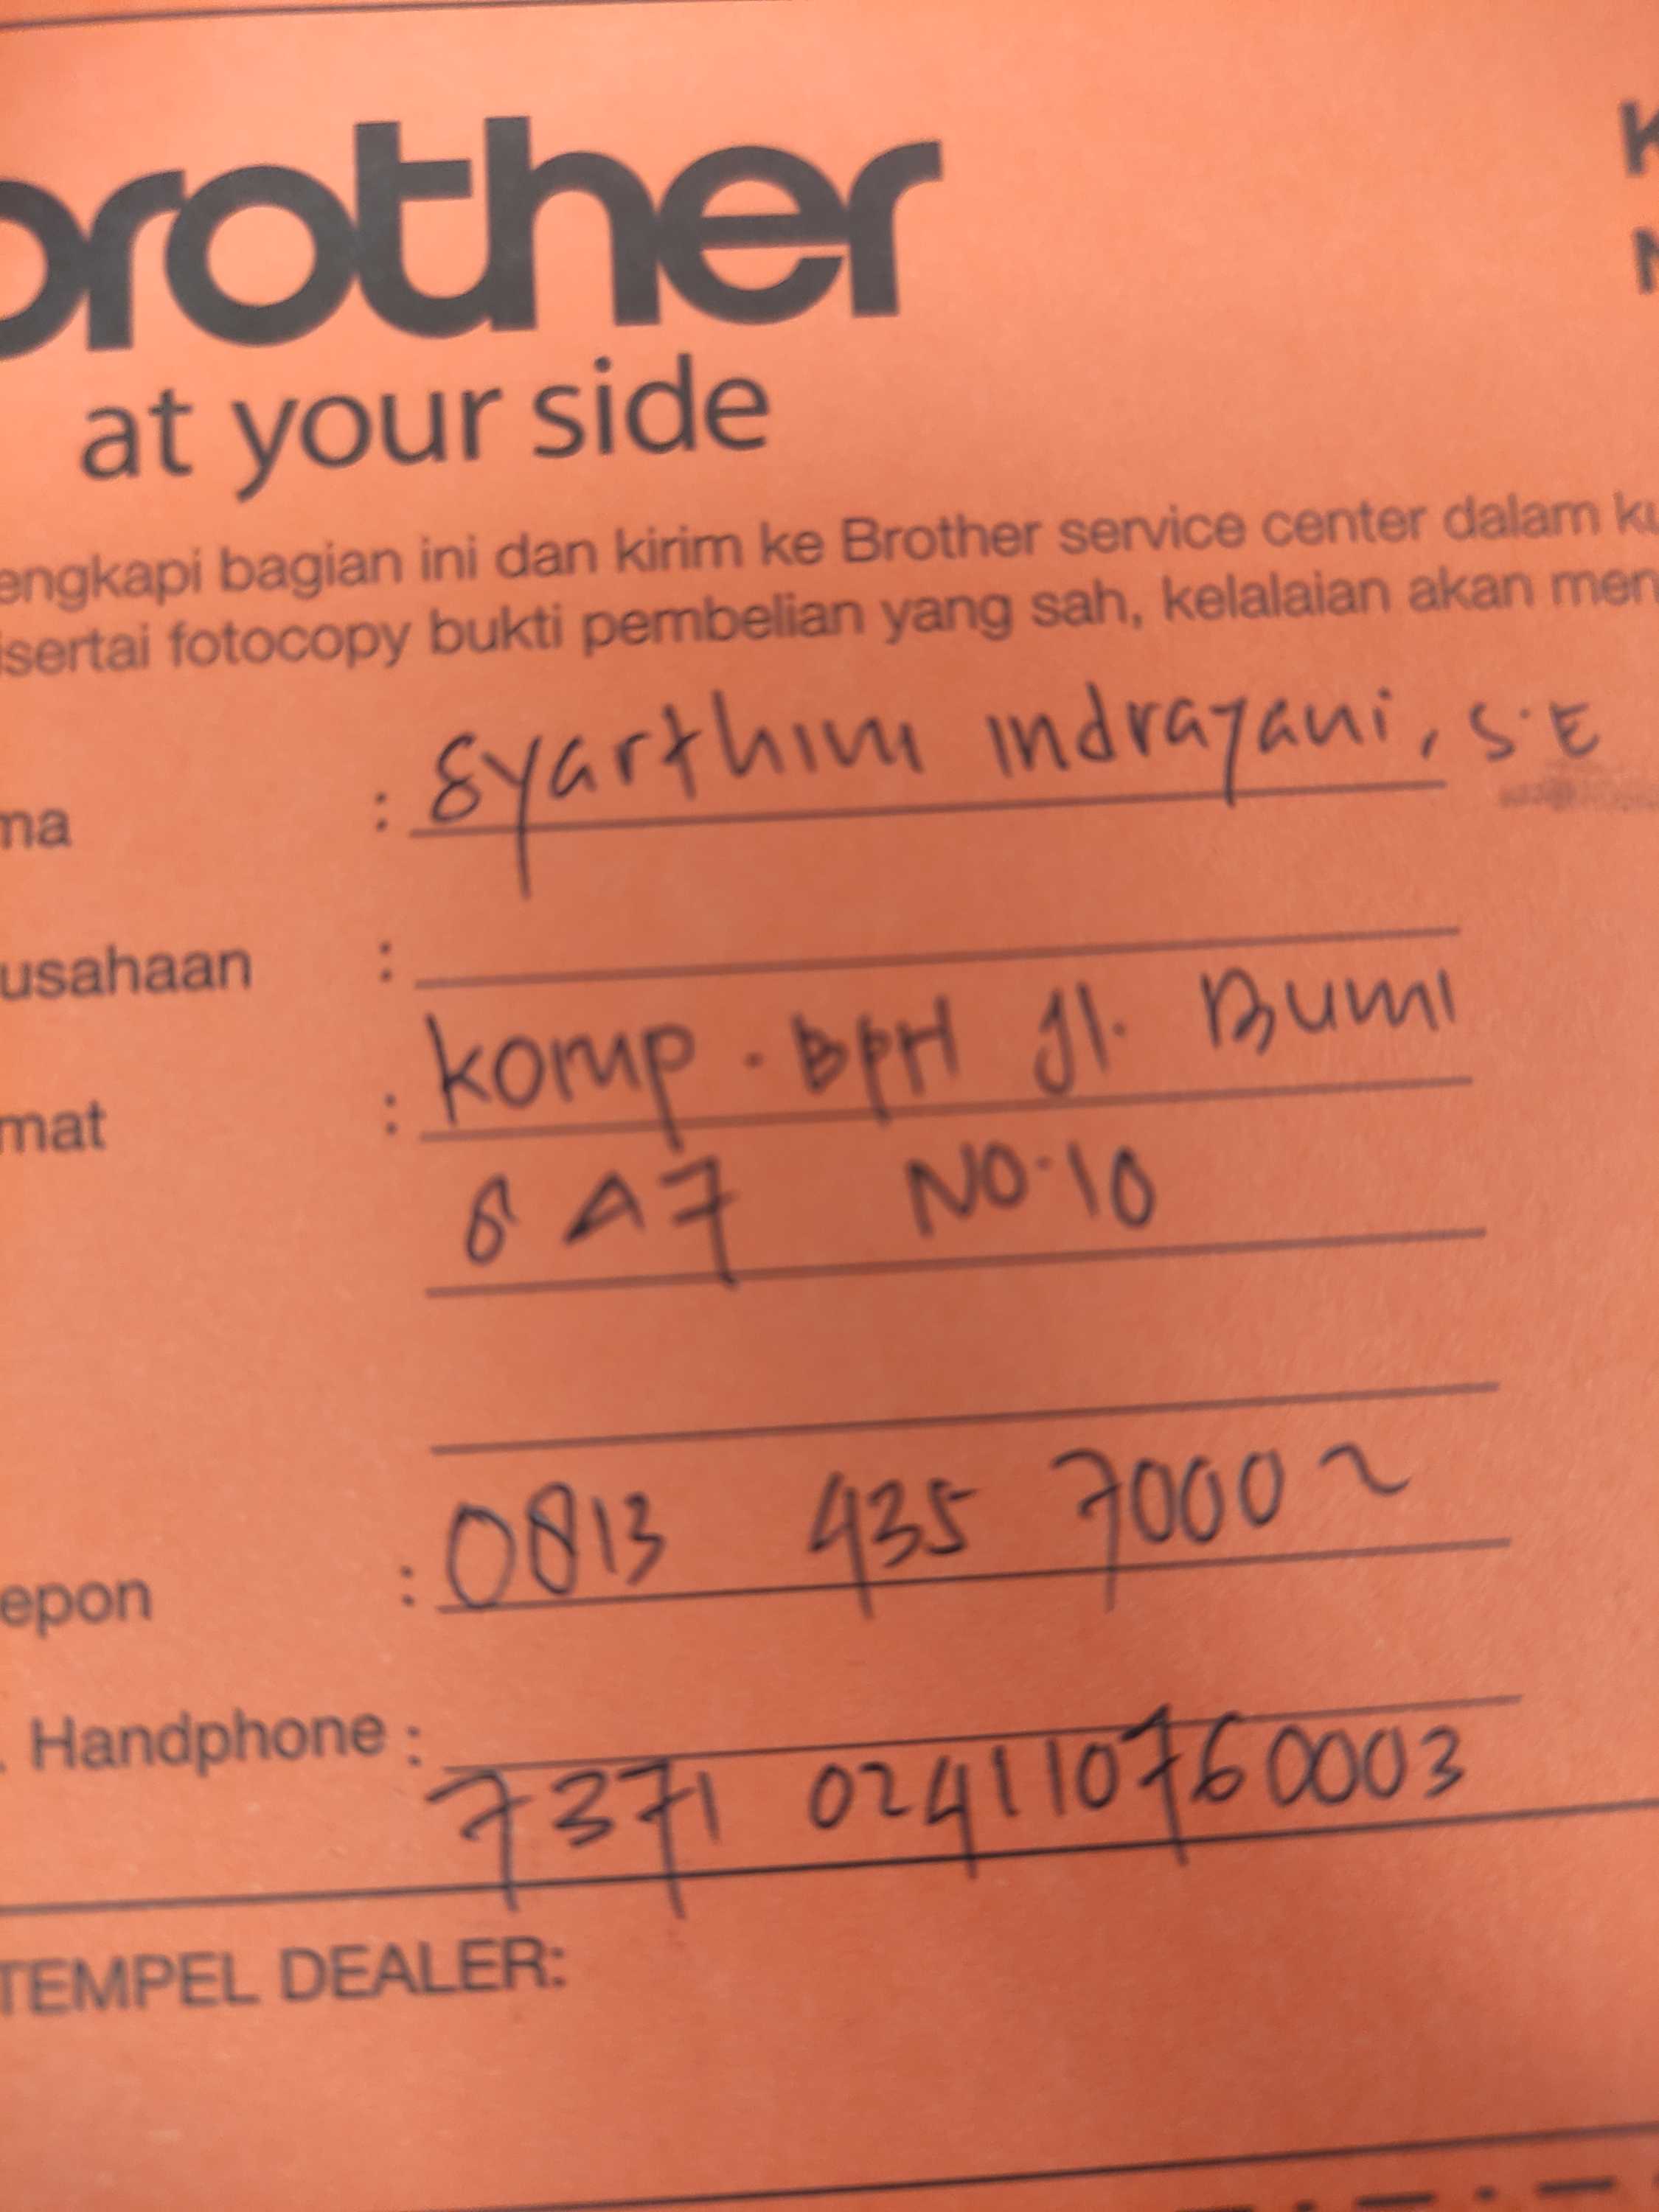 brother
at your side
engkapi bagian ini dan kirim ke Brother service center dalam ku
isertai fotocopy bukti pembelian yang sah, kelalaian akan men
ma : Syarthini Indrayani, S.E
usahaan :
mat : Komp. BPH Jl. Bumi
8 A7 NO.10
epon : 0813 435 70002
. Handphone :
7371 024110760003
TEMPEL DEALER: